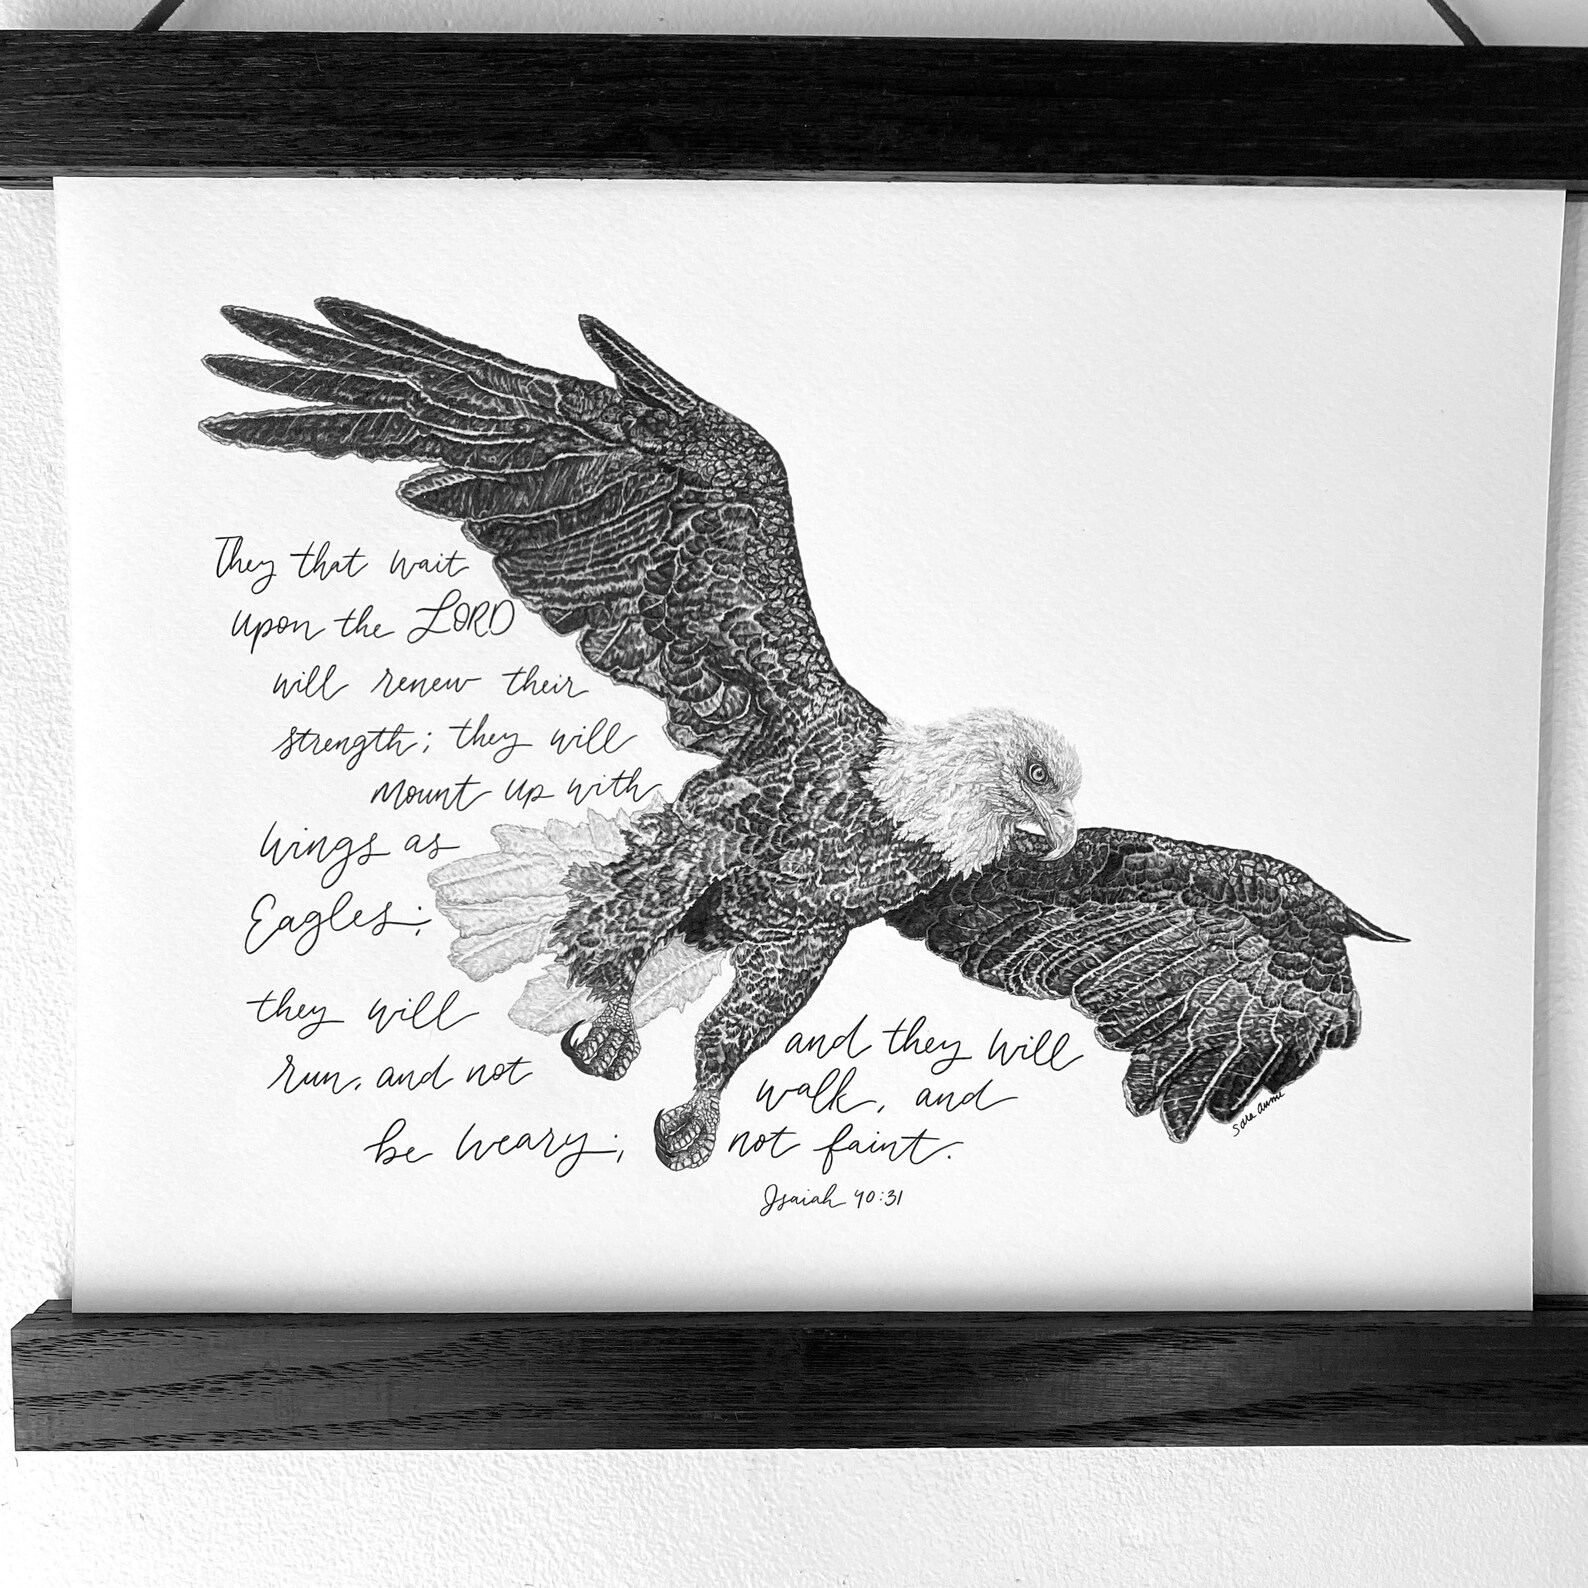 They that wait
upon the LORD
will renew their
strength; they will
mount up with
wings as
Eagles;
they will
run, and not
be weary;
and they will
walk, and
not faint.
Isaiah 40:31
Sara Aume